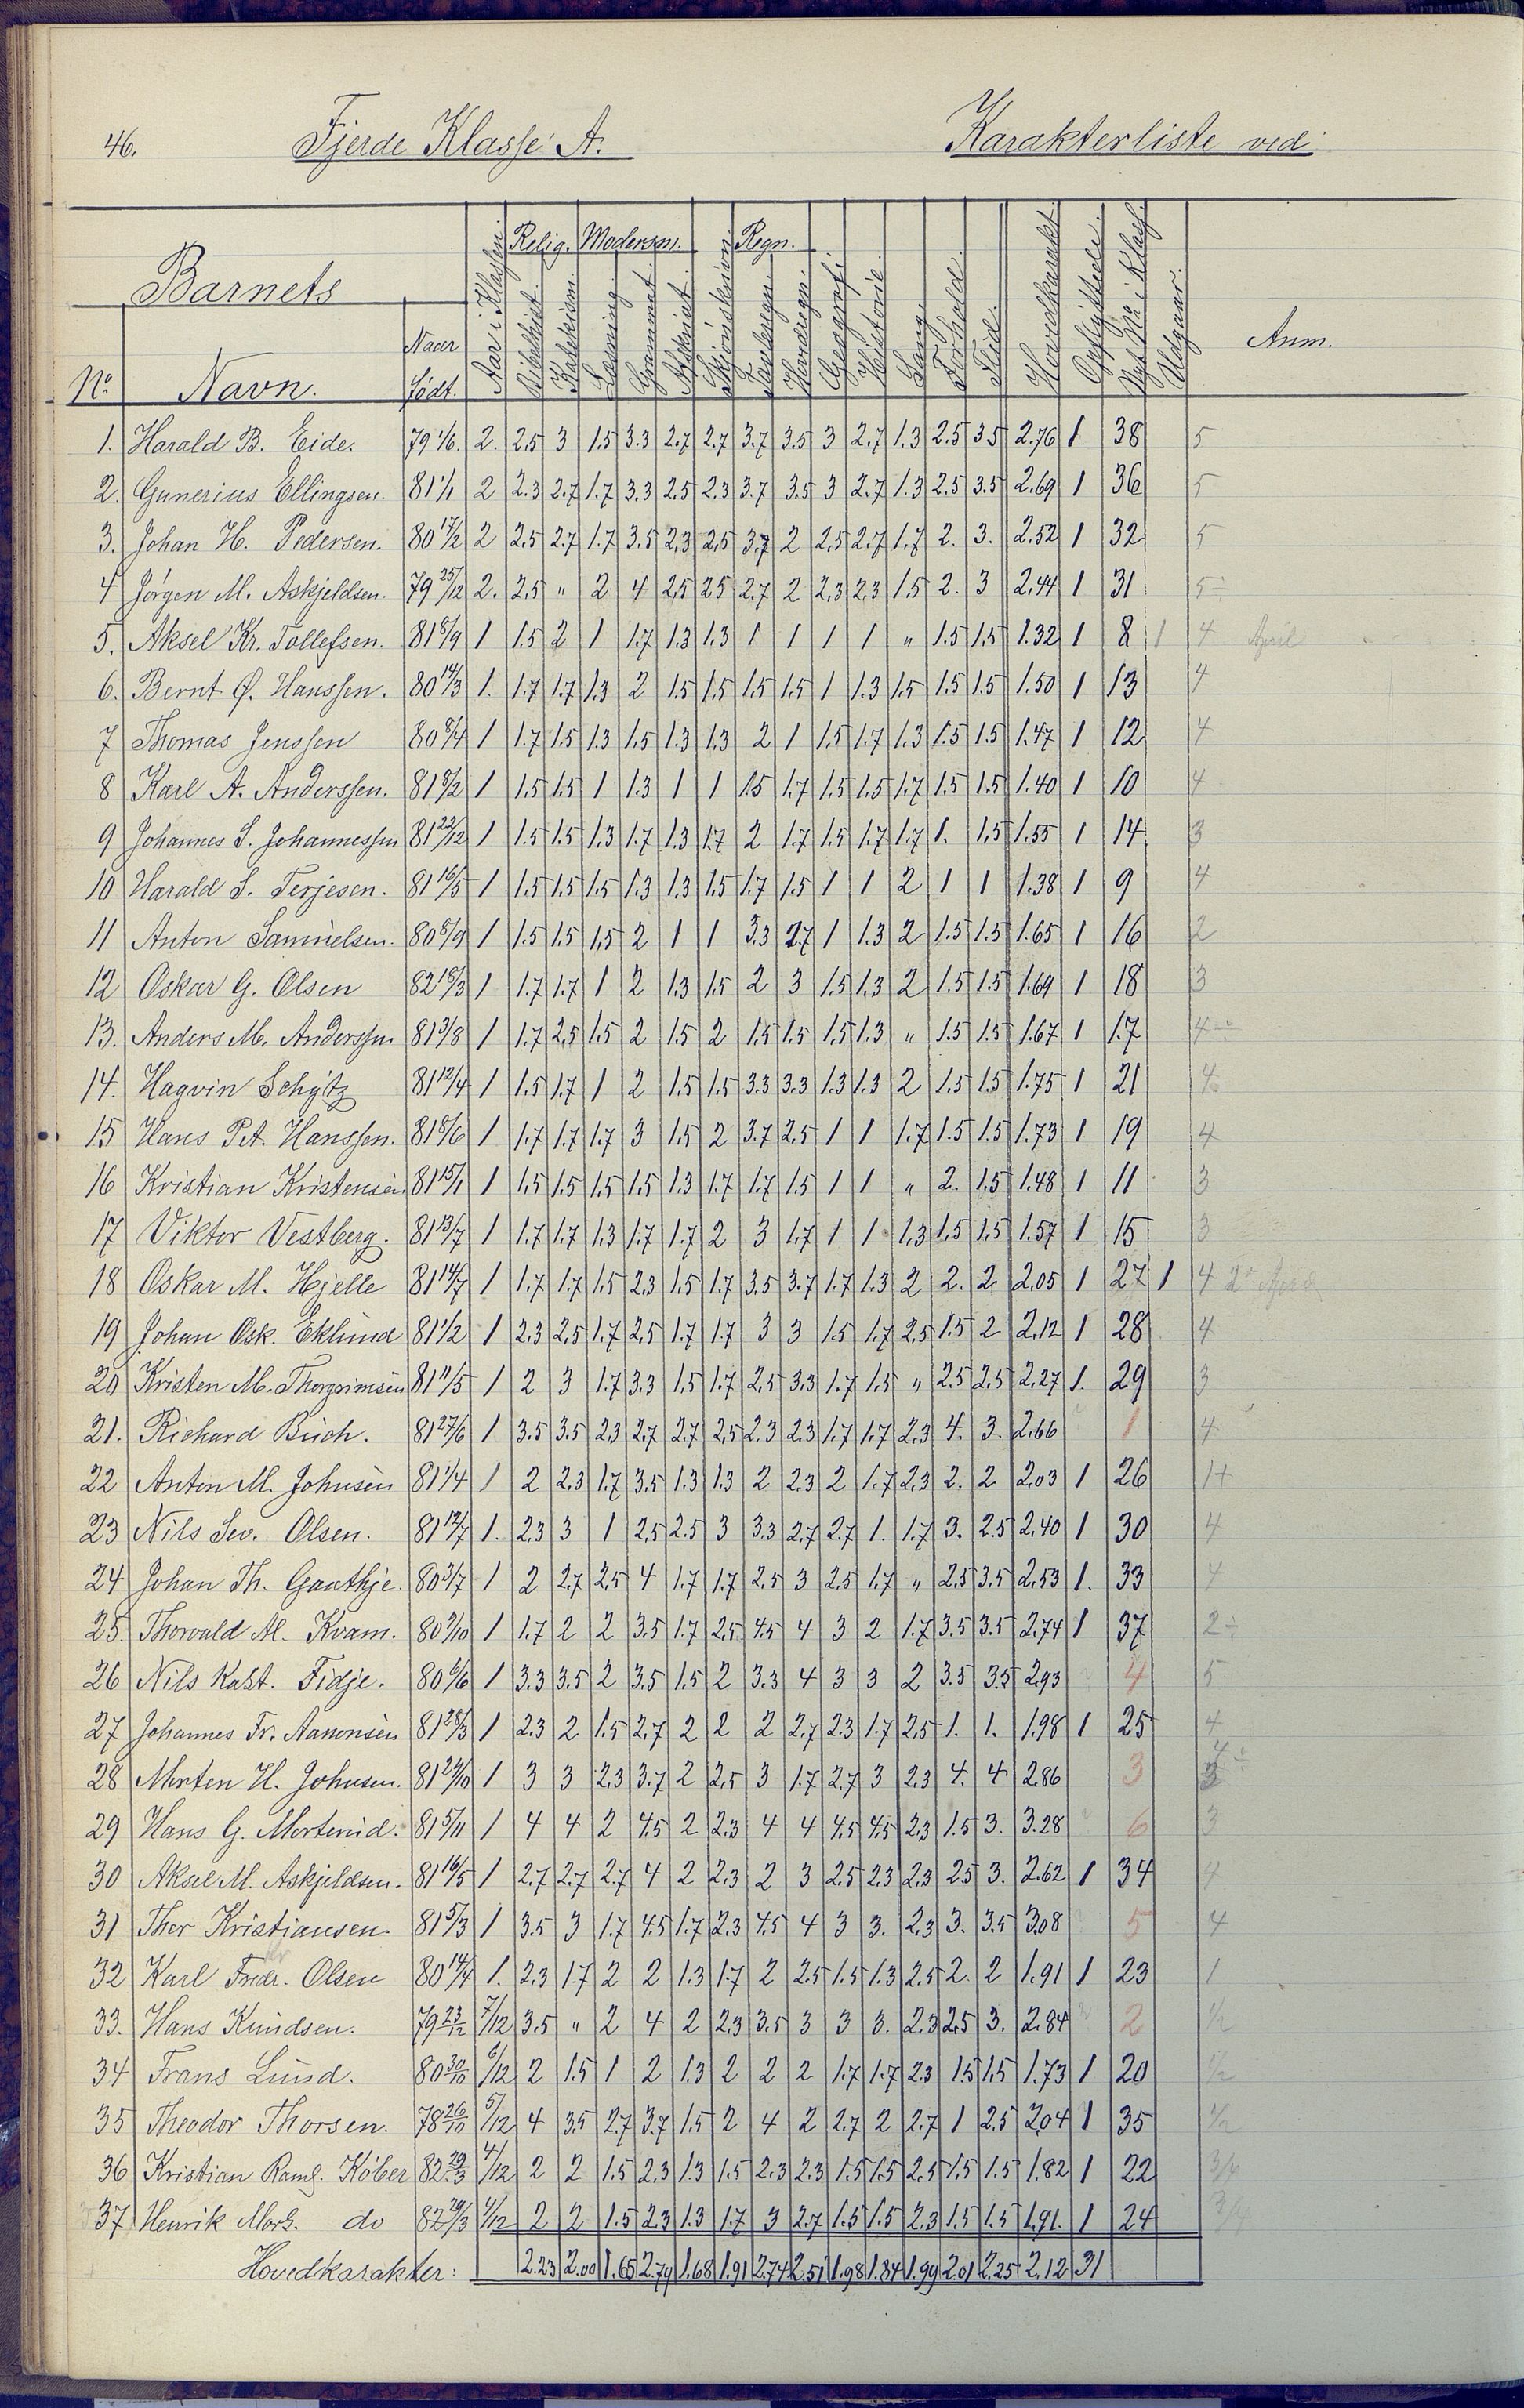 46. Fjerde Klasse A. Karakterliste ved
Barnets Aar i Klassen. Relig. Modersm. Regn.
No Navn. Naar født. Bibelhist. Katekism. Læsning Grammat. Retskrivt. Skjønskrivn. Tavleregn. Hovedregn. Geografi. Historie. Sang. Forhold. Flid. Hovedkarakt. Opflyttede. Nyt No i Klass. Udgaar. Anm.
1. Harald B. Eide. 79 1/6. 2. 2.5 3 1.5 3.3 2.7 2.7 3.7 3.5 3 2.7 1.3 2.5 3.5 2.76 1 38 5
2. Gunerius Ellingsen. 81 1/1 2 2.3 2.7 1.7 3.3 2.5 2.3 3.7 3.5 3 2.7 1.3 2.5 3.5 2.69 1 36 5
3. Johan H. Pedersen. 80 17/2 2 2.5 2.7 1.7 3.5 2.3 2.5 3.7 2 2.5 2.7 1.7 2. 3. 2.52 1 32 5
4 Jørgen M. Askjeldsen. 79 25/12 2. 2.5 " 2 4 2.5 2.5 2.7 2 2.3 2.3 1.5 2. 3 2.44 1 31 5÷
5. Aksel Kr. Tollefsen. 81 8/9 1 1.5 2 1 1.7 1.3 1.3 1 1 1 1 " 1.5 1.5 1.32 1 8 1 4 April
6. Bernt Ø. Hanssen. 80 14/3 1. 1.7 1.7 1.3 2 1.5 1.5 1.5 1.5 1 1.3 1.5 1.5 1.5 1.50 1 13 4
7 Thomas Jenssen 80 8/4 1 1.7 1.5 1.3 1.5 1.3 1.3 2 1 1.5 1.7 1.3 1.5 1.5 1.47 1 12 4
8 Karl A. Anderssen. 81 8/2 1 1.5 1.5 1 1.3 1 1 1.5 1.7 1.5 1.5 1.7 1.5 1.5 1.40 1 10 4
9 Johannes S. Johannessen 81 22/12 1 1.5 1.5 1.3 1.7 1.3 1.7 2 1.7 1.5 1.7 1.7 1. 1.5 1.55 1 14 3
10 Harald S. Terjesen. 81 16/5 1 1.5 1.5 1.5 1.3 1.3 1.5 1.7 1.5 1 1 2 1 1 1.38 1 9 4
11 Anton Samuelsen. 80 8/9 1 1.5 1.5 1.5 2 1 1 3.3 2.7 1 1.3 2 1.5 1.5 1.65 1 16 2
12 Oskar G. Olsen 82 18/3 1 1.7 1.7 1 2 1.3 1.5 2 3 1.5 1.3 2 1.5 1.5 1.69 1 18 3
13. Anders M. Anderssen 81 3/8 1 1.7 2.5 1.5 2 1.5 2 1.5 1.5 1.5 1.3 " 1.5 1.5 1.67 1 17 4÷
14. Hagvin Schytz 81 12/4 1 1.5 1.7 1 2 1.5 1.5 3.3 3.3 1.3 1.3 2 1.5 1.5 1.75 1 21 4
15 Hans P.A. Hanssen. 81 8/6 1 1.7 1.7 1.7 3 1.5 2 3.7 2.5 1 1 1.7 1.5 1.5 1.73 1 19 4
16 Kristian Kristensen 81 15/1 1 1.5 1.5 1.5 1.5 1.3 1.7 1.7 1.5 1 1 " 2. 1.5 1.48 1 11 3
17 Viktor Vestberg. 81 13/7 1 1.7 1.7 1.3 1.7 1.7 2 3 1.7 1 1 1.3 1.5 1.5 1.57 1 15 3
18 Oskar M. Hjelle 81 14/7 1 1.7 1.7 1.5 2.3 1.5 1.7 3.5 3.7 1.7 1.3 2 2. 2 2.05 1 27 1 4
19 Johan Osk. Eklund 81 1/2 1 2.3 2.5 1.7 2.5 1.7 1.7 3 3 1.5 1.7 2.5 1.5 2 2.12 1 28 4
20 Kristen M. Thorgrimsen 81 11/5 1 2 3 1.7 3.3 1.5 1.7 2.5 3.3 1.7 1.5 " 2.5 2.5 2.27 1. 29 3
21. Richard Buch. 81 27/6 1 3.5 3.5 2.3 2.7 2.7 2.5 2.3 2.3 1.7 1.7 2.3 4. 3. 2.66 1 4
22 Anton M. Johnsen 81 1/4 1 2 2.3 1.7 3.5 1.3 1.3 2 2.3 2 1.7 2.3 2. 2 2.03 1 26 1+
23 Nils Sev. Olsen. 81 12/7 1. 2.3 3 1 2.5 2.5 3 3.3 2.7 2.7 1. 1.7 3. 2.5 2.40 1 30 4
24 Johan Th. Gaathje. 80 3/7 1 2 2.7 2.5 4 1.7 1.7 2.5 3 2.5 1.7 " 2.5 3.5 2.53 1. 33 4
25. Thorvald Al. Kvam. 80 9/10 1 1.7 2 2 3.5 1.7 2.5 4.5 4 3 2 1.7 3.5 3.5 2.74 1 37 2÷
26 Nils Kast. Fidje. 80 6/6 1 3.3 3.5 2 3.5 1.5 2 3.3 4 3 3 2 3.5 3.5 2.93 4 5
27 Johannes Fr. Aanensen 81 28/3 1 2.3 2 1.5 2.7 2 2 2 2.7 2.3 1.7 2.5 1. 1. 1.98 1 25 4
28 Morten H. Johnsen. 81 24/10 1 3 3 2.3 3.7 2 2.5 3 1.7 2.7 3 2.3 4. 4 2.86 3
29 Hans G. Mortenid. 81 5/11 1 4 4 2 4.5 2 2.3 4 4 4.5 4.5 2.3 1.5 3. 3.28 6 3
30 Aksel M. Askjeldsen. 81 16/5 1 2.7 2.7 2.7 4 2 2.3 2 3 2.5 2.3 2.3 2.5 3. 2.62 1 34 4
31 Thor Kristiansen. 81 5/3 1 3.5 3 1.7 4.5 1.7 2.3 4.5 4 3 3. 2.3 3. 3.5 3.08 5 4
32 Karl Fredr. Olsen 80 14/4 1. 2.3 1.7 2 2 1.3 1.7 2 2.5 1.5 1.3 2.5 2. 2 1.91 1 23 1
33. Hans Knudsen. 79 23/12 7/12 3.5 " 2 4 2 2.3 3.5 3 3 3. 2.3 2.5 3. 2.84 2 1/2
34 Frans Lund. 80 30/10 6/12 2 1.5 1 2 1.3 2 2 2 1.7 1.7 2.3 1.5 1.5 1.73 1 20 1/2
35 Theodor Thorsen. 78 26/10 5/12 4 3.5 2.7 3.7 1.5 2 4 2 2.7 2 2.7 1 2.5 2.04 1 35 1/2
36 Kristian Rams. Köber 82 29/3 4/12 2 2 1.5 2.3 1.3 1.5 2.3 2.3 1.5 1.5 2.5 1.5 1.5 1.82 1 22
37 Henrik Mors. do 82 29/3 4/12 2 2 1.5 2.3 1.3 1.7 3 2.7 1.5 1.5 2.3 1.5 1.5 1.91. 1 24
Hovedkarakter: 2.23 2.00 1.65 2.79 1.68 1.91 2.74 2.51 1.98 1.84 1.99 2.01 2.25 2.12 31